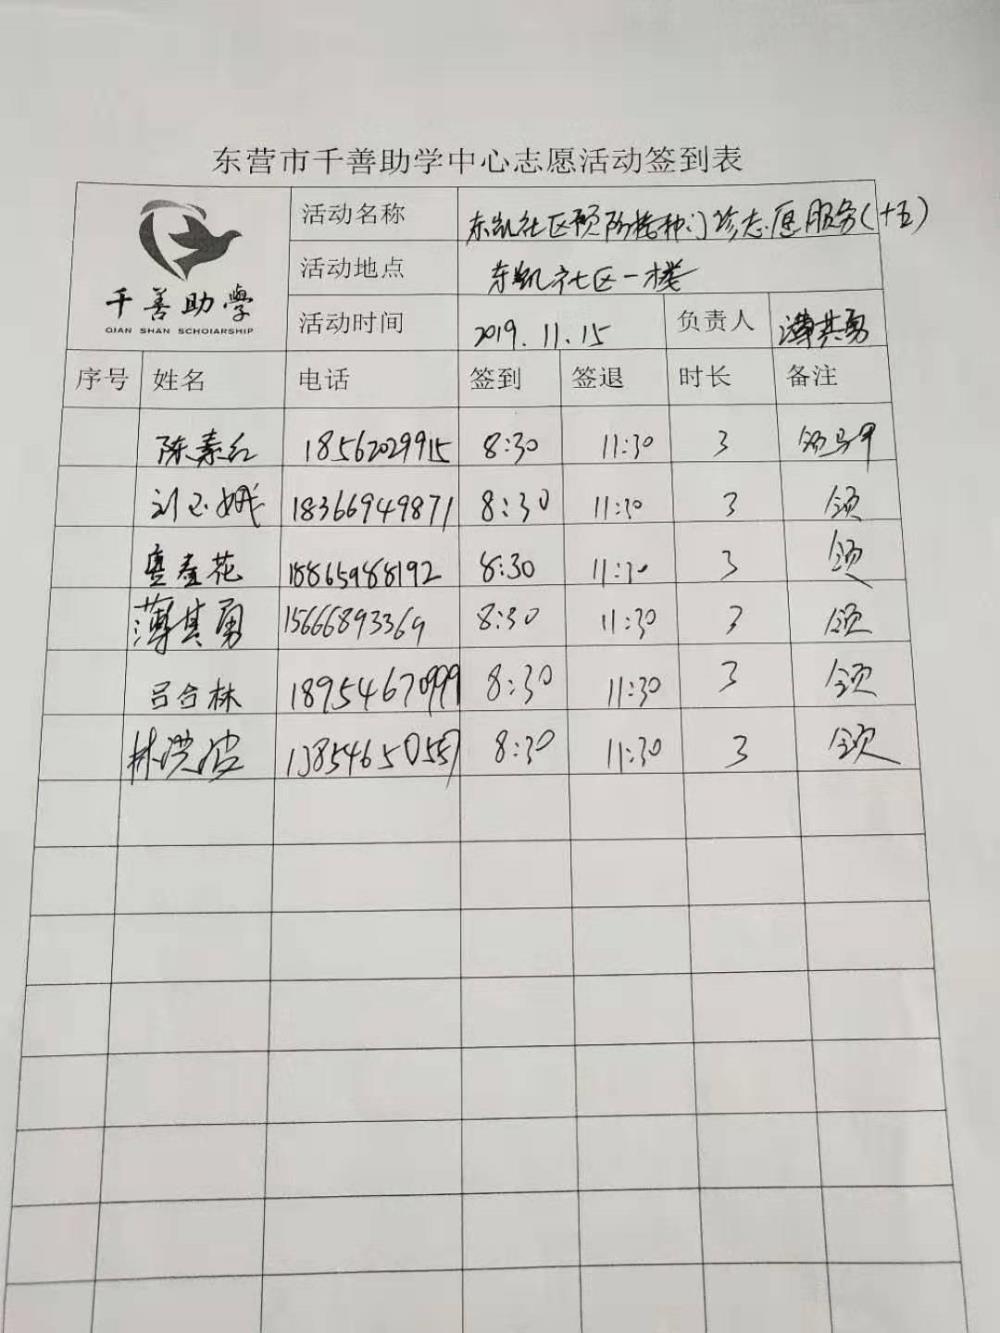 东营市千善助学中心志愿活动签到表
千善助學
QIAN SHAN SCHOIARSHIP
活动名称 东凯社区预防接种门诊志愿服务(十五)
活动地点 东凯社区一楼
活动时间 2019.11.15 负责人 薄其勇
序号 姓名 电话 签到 签退 时长 备注
陈素红 18562029915 8:30 11:30 3 领马甲
刘玉娥 18366949871 8:30 11:30 3 领
花 18865988192 8:30 11:30 3 领
薄其勇 15666893369 8:30 11:30 3 领
吕合林 18954670999 8:30 11:30 3 领
林洪波 8:30 11:30 3 领